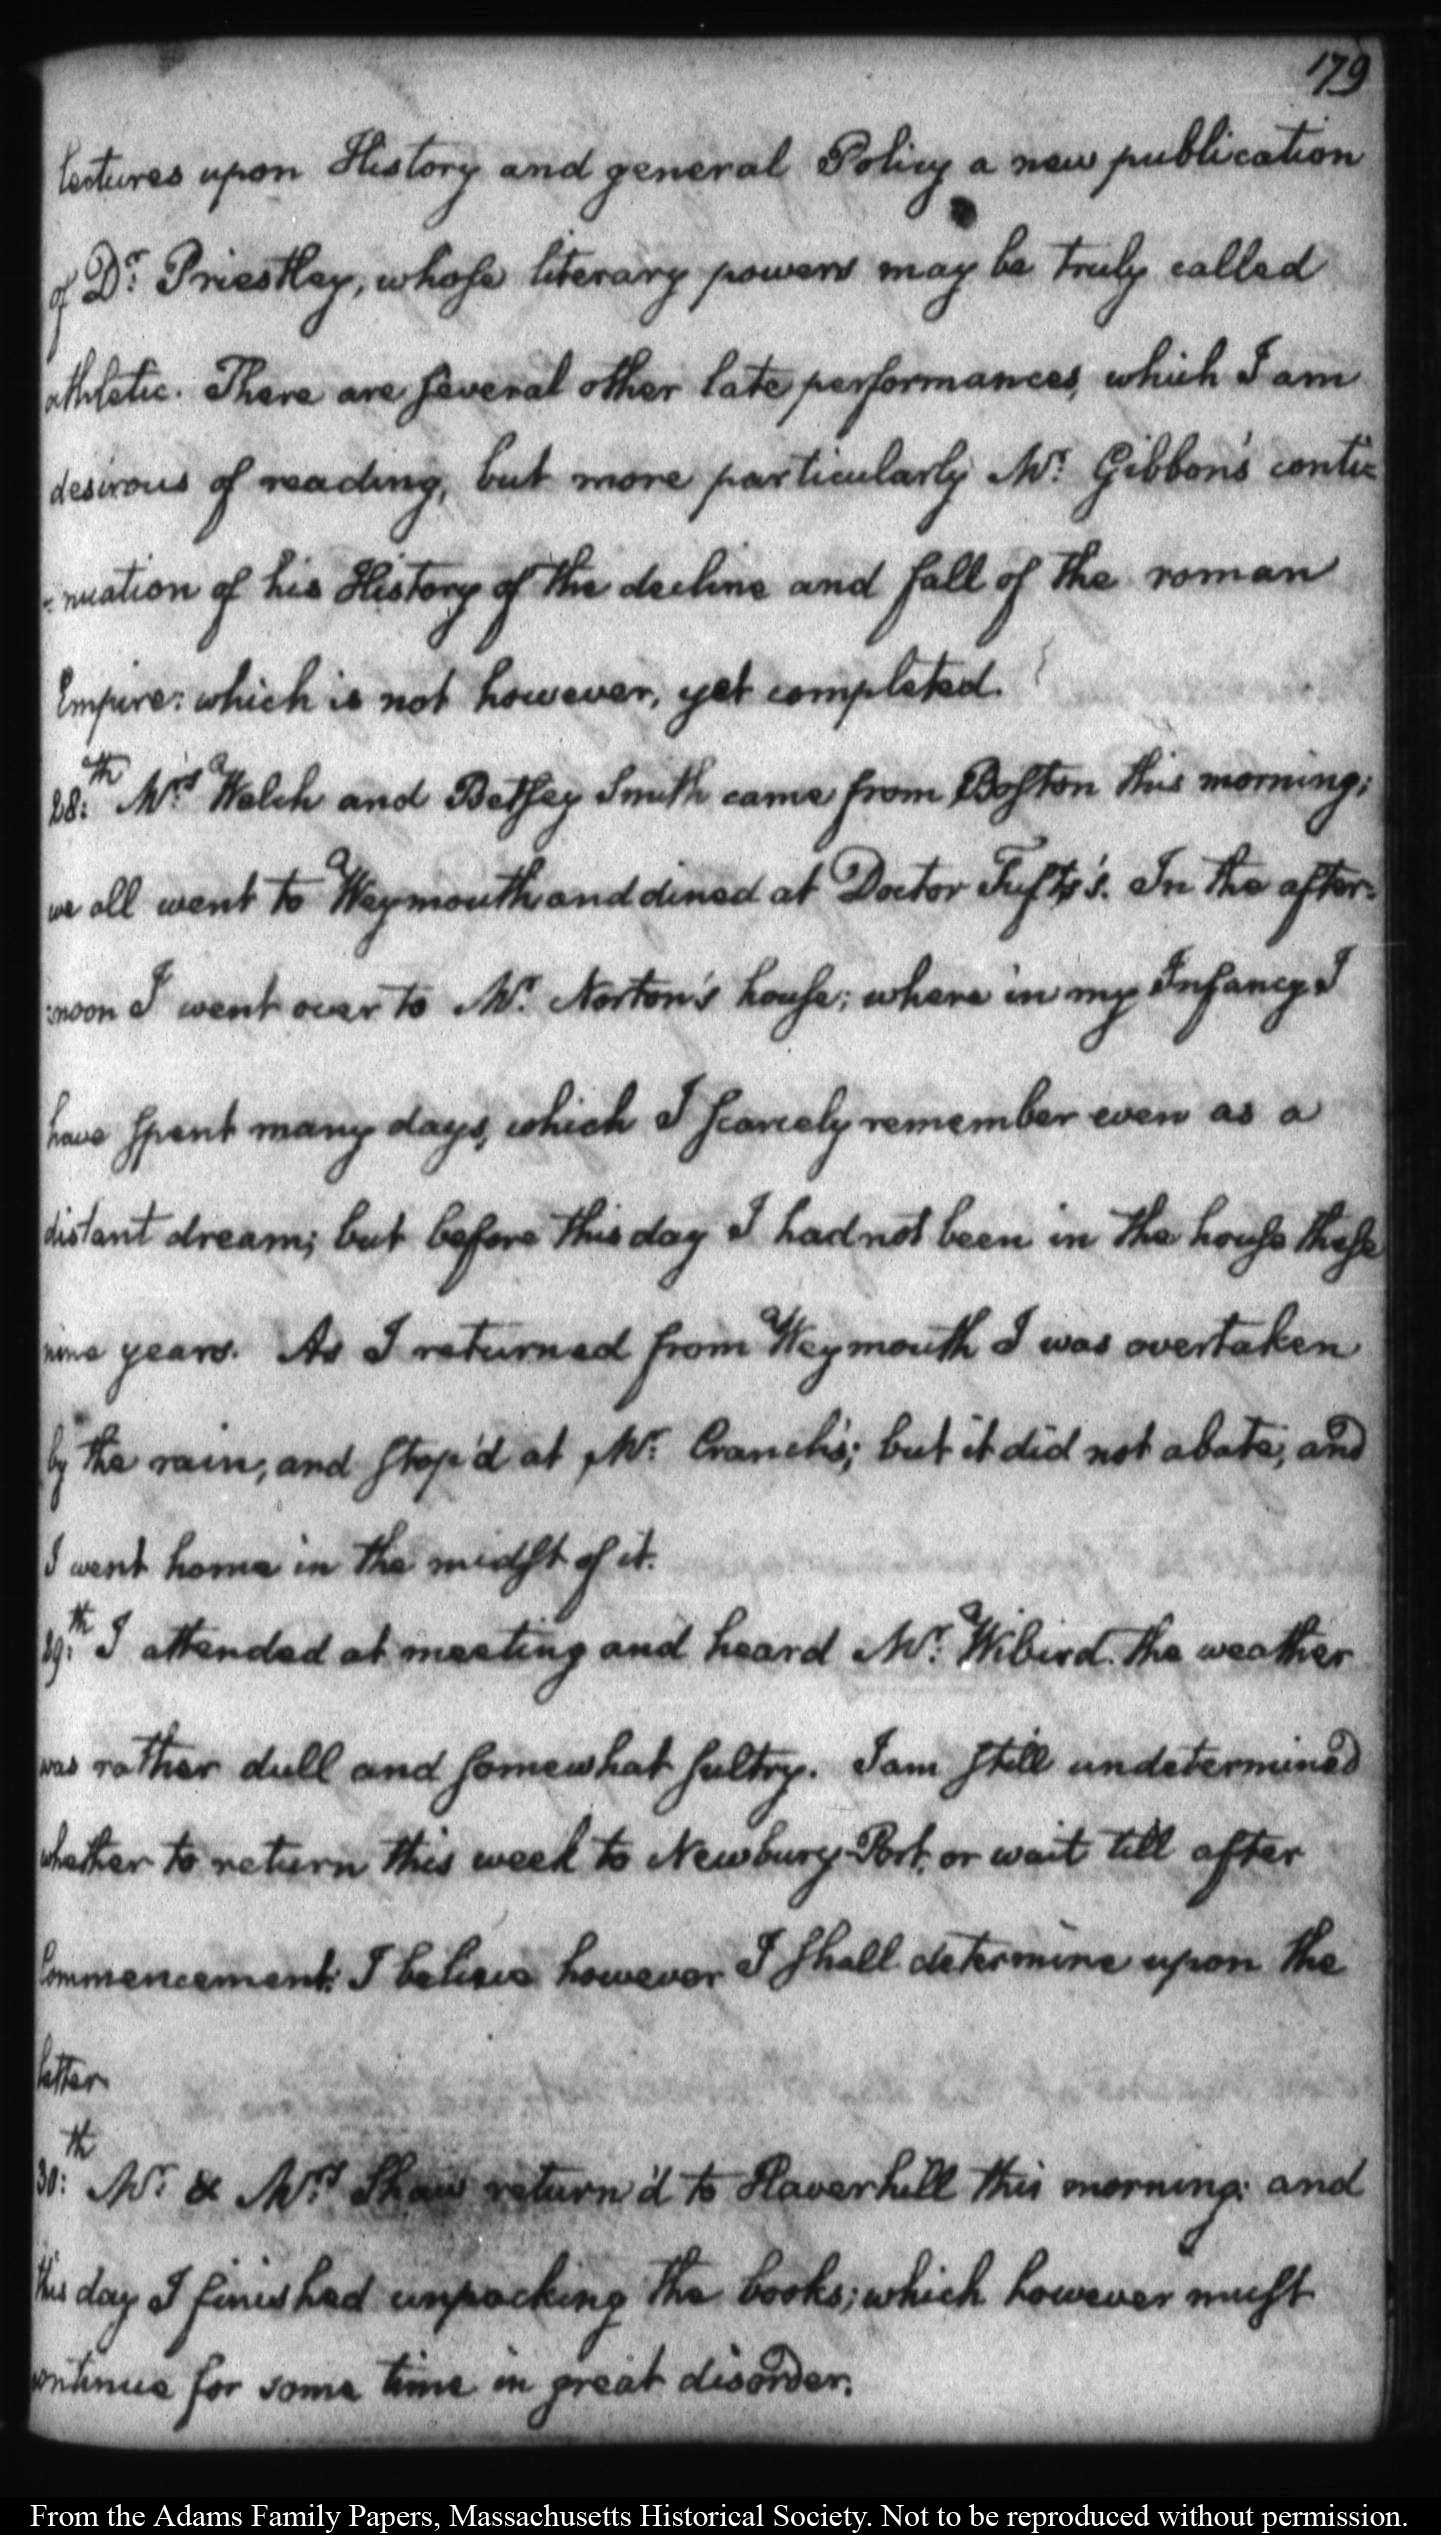 179
lectures upon History and general Policy a new publication
of Dr. Priestley, whose literary powers may be truly called
athletic. There are several other late performances, which I am
desirous of reading, but more particularly Mr. Gibbon's conti=
=nuation of his History of the decline and fall of the roman
Empire: which is not however, yet completed.
28:th Mrs. Welch and Betsey Smith came from Boston this morning;
we all went to Weymouth and dined at Doctor Tufts's. In the after=
=noon I went over to Mr. Norton's house; where in my Infancy I
have spent many days, which I scarcely remember even as a
distant dream; but before this day I had not been in the house these
nine years. As I returned from Weymouth I was overtaken
by the rain, and stop'd at Mr. Cranch's; but it did not abate, and
I went home in the midst of it.
29:th I attended at meeting and heard Mr. Wibird. the weather
was rather dull and somewhat sultry. I am still undetermined
whether to return this week to Newbury-Port, or wait till after
Commencement: I believe however I shall determine upon the
latter.
30:th Mr. & Mrs. Shaw return'd to Haverhill this morning: and
this day I finished unpacking the books; which however must
continue for some time in great disorder.
From the Adams Family Papers, Massachusetts Historical Society. Not to be reproduced without permission.